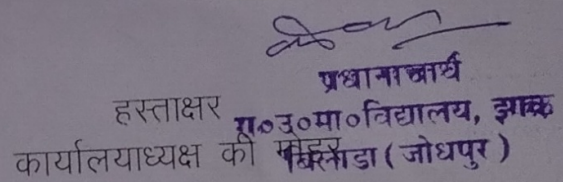 प्रधानाचार्य
हस्ताक्षर रा०उ०मा०विद्यालय, झाक
कार्यालयाध्यक्ष की मोहर बिलाडा (जोधपुर)